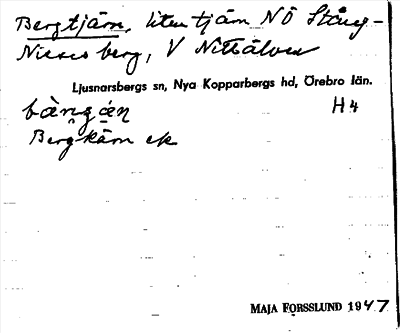 Bergtjärn, liten tjärn NÖ Stång-
Nissesberg, V Nittälven
Ljusnarsbergs sn, Nya Kopparbergs hd, Örebro län.
H4
Bergkärn ek
MAJA FORSSLUND 1947